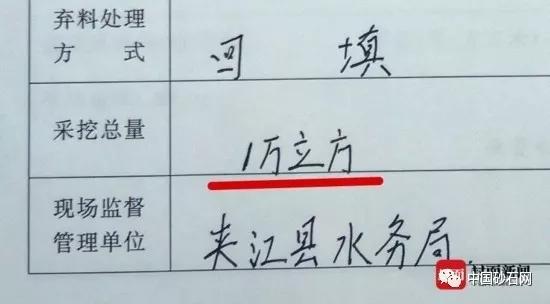 弃料处理
方 式
回 填
采挖总量
1万立方
现场监督
管理单位
夹江县水务局
中国砂石网